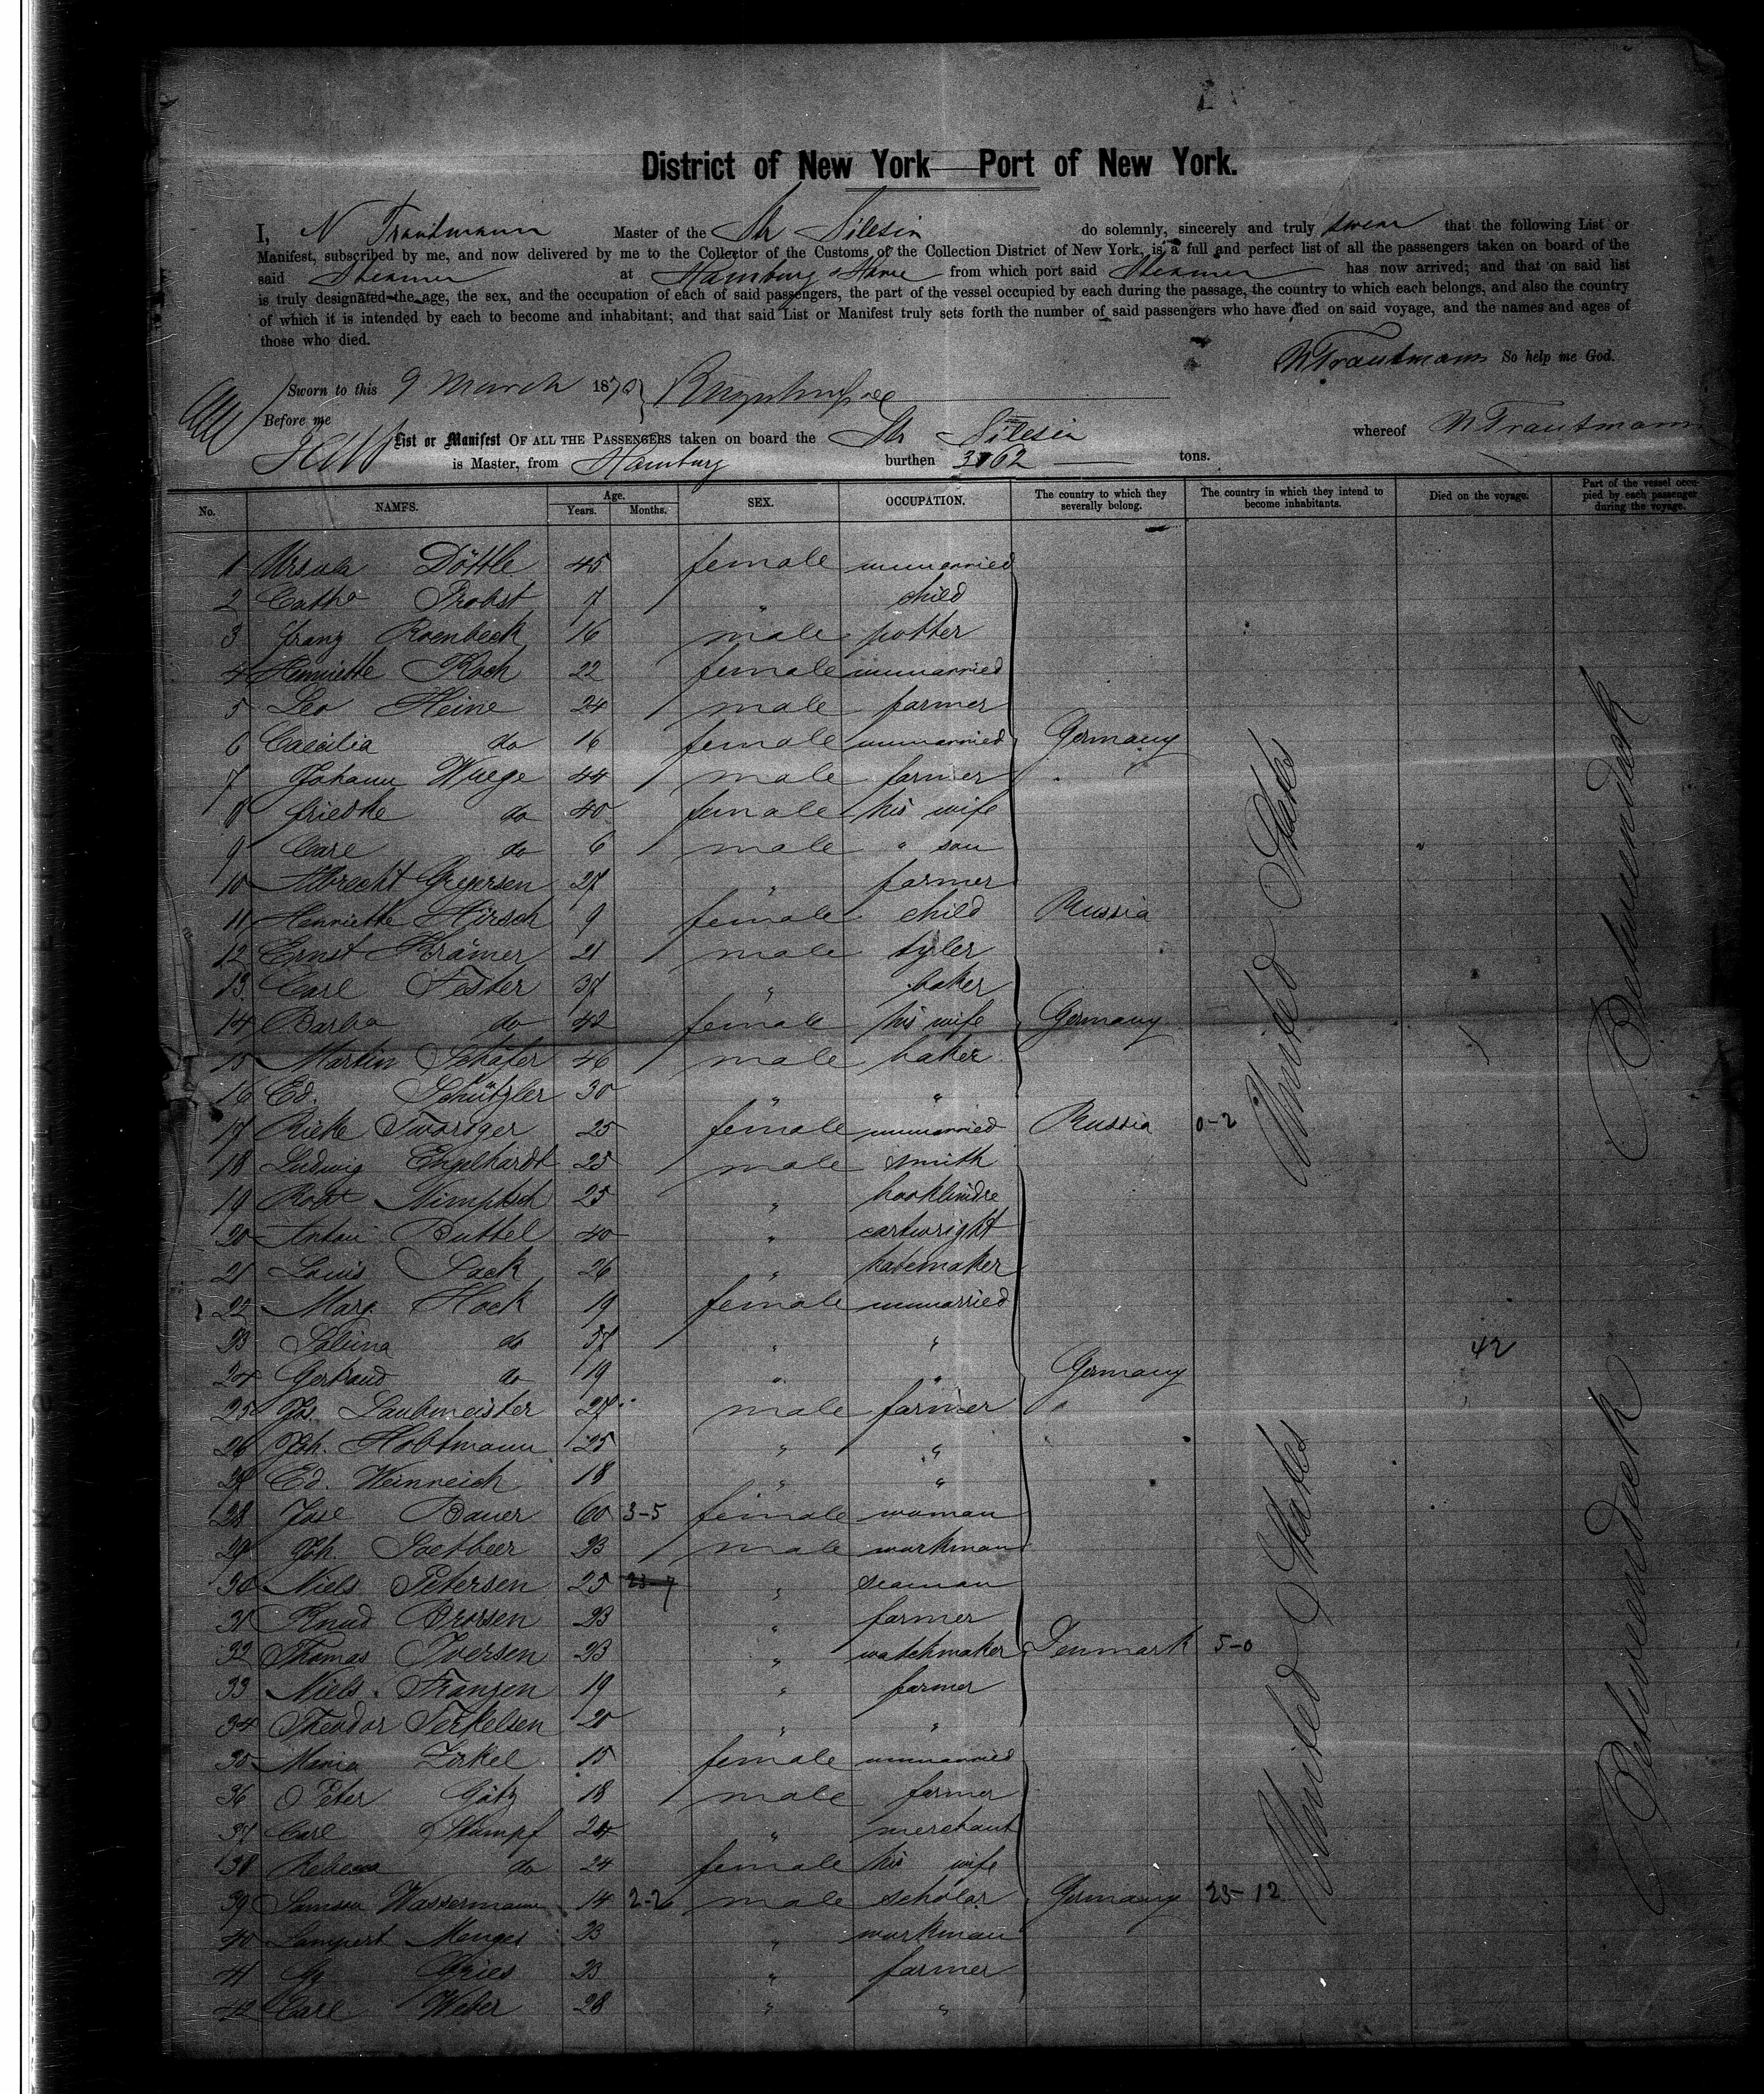 District of New York — Port of New York.
I, N Trautmann Master of the Str Silesia do solemnly, sincerely and truly swear that the following List or
Manifest, subscribed by me, and now delivered by me to the Collector of the Customs of the Collection District of New York, is a full and perfect list of all the passengers taken on board of the
said Steamer at Hamburg & Havre from which port said Steamer has now arrived; and that on said list
is truly designated the age, the sex, and the occupation of each of said passengers, the part of the vessel occupied by each during the passage, the country to which each belongs, and also the country
of which it is intended by each to become and inhabitant; and that said List or Manifest truly sets forth the number of said passengers who have died on said voyage, and the names and ages of
those who died.
N Trautmann So help me God.
Sworn to this 9 March 187
Before me
List or Manifest OF ALL THE PASSENGERS taken on board the Str Silesia whereof N Trautmann
is Master, from Hamburg burthen 3162 tons.
No. NAMES. Age. Years. Months. SEX. OCCUPATION. The country to which they severally belong. The country in which they intend to become inhabitants. Died on the voyage. Part of the vessel occupied by each passenger during the voyage.
1 Ursula Döttle 45 female unmarried
2 Catha Probst 7 " child
3 Franz Roenbeck 16 male potter
4 Henriette Koch 22 female unmarried
5 Leo Heine 24 male farmer
6 Caecilia do 16 female unmarried Germany
7 Johann Wuege 44 male farmer
8 Friedke do 40 female his wife
9 Carl do 6 male " son
10 Albrecht Gregersen 27 " farmer
11 Henriette Hirsch 9 female child Russia
12 Ernst Krämer 21 male tyler
13 Carl Fester 37 " baker
14 Barba do 42 female his wife Germany
15 Martin Schäfer 46 male baker
16 Ed. Schützler 30 " "
17 Rieke 25 female unmarried Russia 0-2
18 Ludwig Engelhardt 25 male smith
19 Robt Nimptsch 25 "
20 Anton Buttel 40 " cartwright
21 Louis Sack 26 "
22 Marg. Hock 19 female unmarried
23 Sabina do 57 " " 42
24 Gertraud do 19 " " Germany
25 Js. Laubmeister 27 male farmer
26 Joh. Holtmann 25 " "
27 Ed. Heinreich 18 " "
28 Jose Bauer 60 3-5 female woman
29 Joh. Soetbeer 23 male workman
30 Niels Petersen 25 23-7 " seaman
31 Knud Brorsen 23 " farmer
32 Thomas Iversen 23 " watchmaker Denmark 5-0
33 Niels Franzen 19 " farmer
34 Theodor Terkelsen 20 " "
35 Maria Zirkel 15 female unmarried
36 Peter Götz 18 male farmer
37 Carl Stumpf 24 " merchant
38 Rebecca do 24 female his wife
39 Samson Wassermann 14 2-26 male scholar Germany 23-12
40 Lampert Menges 23 " workman
41 Gg Gries 23 " farmer
42 Carl Weber 28 " "
United States
Betweendeck
United States
Betweendeck